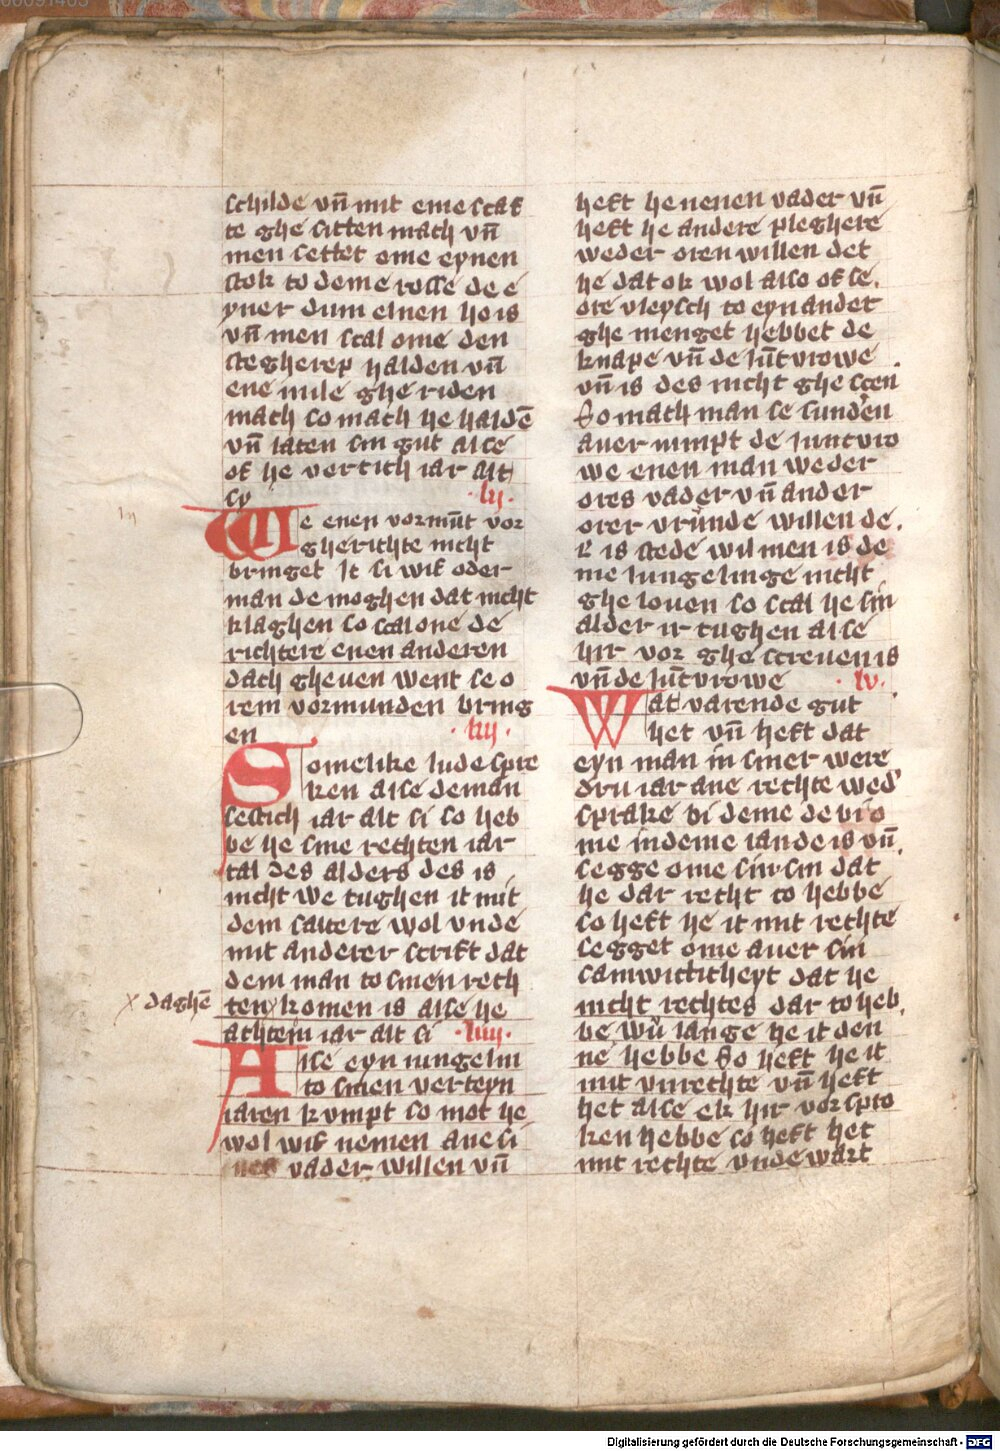 schilde vn̄ mit eme scaf
te ghe sitten mach vn̄
men settet ome eynen
stok to deme rosse de e
yner dum elnen ho is
vn̄ men scal ome den
stegherep halden vn̄
ene mile ghe riden
mach so mach he haldē
vn̄ laten sin gut alse
of he vertich iar alt
sy ·lij·
We enen vormūt vor
gherichte nicht
bringet It si wif oder
man de moghen dat nicht
klaghen so scal one de
richtere enen anderen
dach gheuen went se o
rem vormunden bring
en ·liij·
Somelike lude spre
ken alse de man
sestich iar alt si so heb
be he sine rechten iar
tal des alders des is
nicht we tughen it mit
dem saltere wol vnde
mit anderer scrift dat
dem man to sinen rech
ten komen is alse he
x daghē
achtein iar alt si ·liiij·
Alse eyn iungelin
to sinen verteyn
iaren kumpt so mot he
wol wif nemen ane si
nes vader willen vn̄
heft he nenen vader vn̄
heft he andere pleghere
weder oren willen det
he dat ok wol also of se
ore vleysch to eyn ander
ghe menget hebbet de
knape vn̄ de Iūcvrowe
vn̄ is des nicht ghe scen
So mach man se sunden
auer nimpt de iuncvro
we enen man weder
ores vader vn̄ ander
orer vrunde willen de
k is stede wil men is de
me Iungelinge nicht
ghe louen so scal he sin
alder ir tughen alse
hir vor ghe screuen is
vn̄ de Iūcvrowe ·lv·
Wat varende gut
het vn̄ heft dat
eyn man in siner were
dru iar ane rechte wed'
sprake bi deme de bi o
me in deme lande is vn̄
segge ome sin sin dat
he dar recht to hebbe
so heft he it mit rechte
segget ome auer sin
samwicticheyt dat he
nicht rechtes dar to heb
be wu lange he it den
ne hebbe So heft he it
mit vnrechte vn̄ heft
het alse ek hir vor spro
ken hebbe so heft het
mit rechte vnde wart
Digitalisierung gefördert durch die Deutsche Forschungsgemeinschaft - DFG